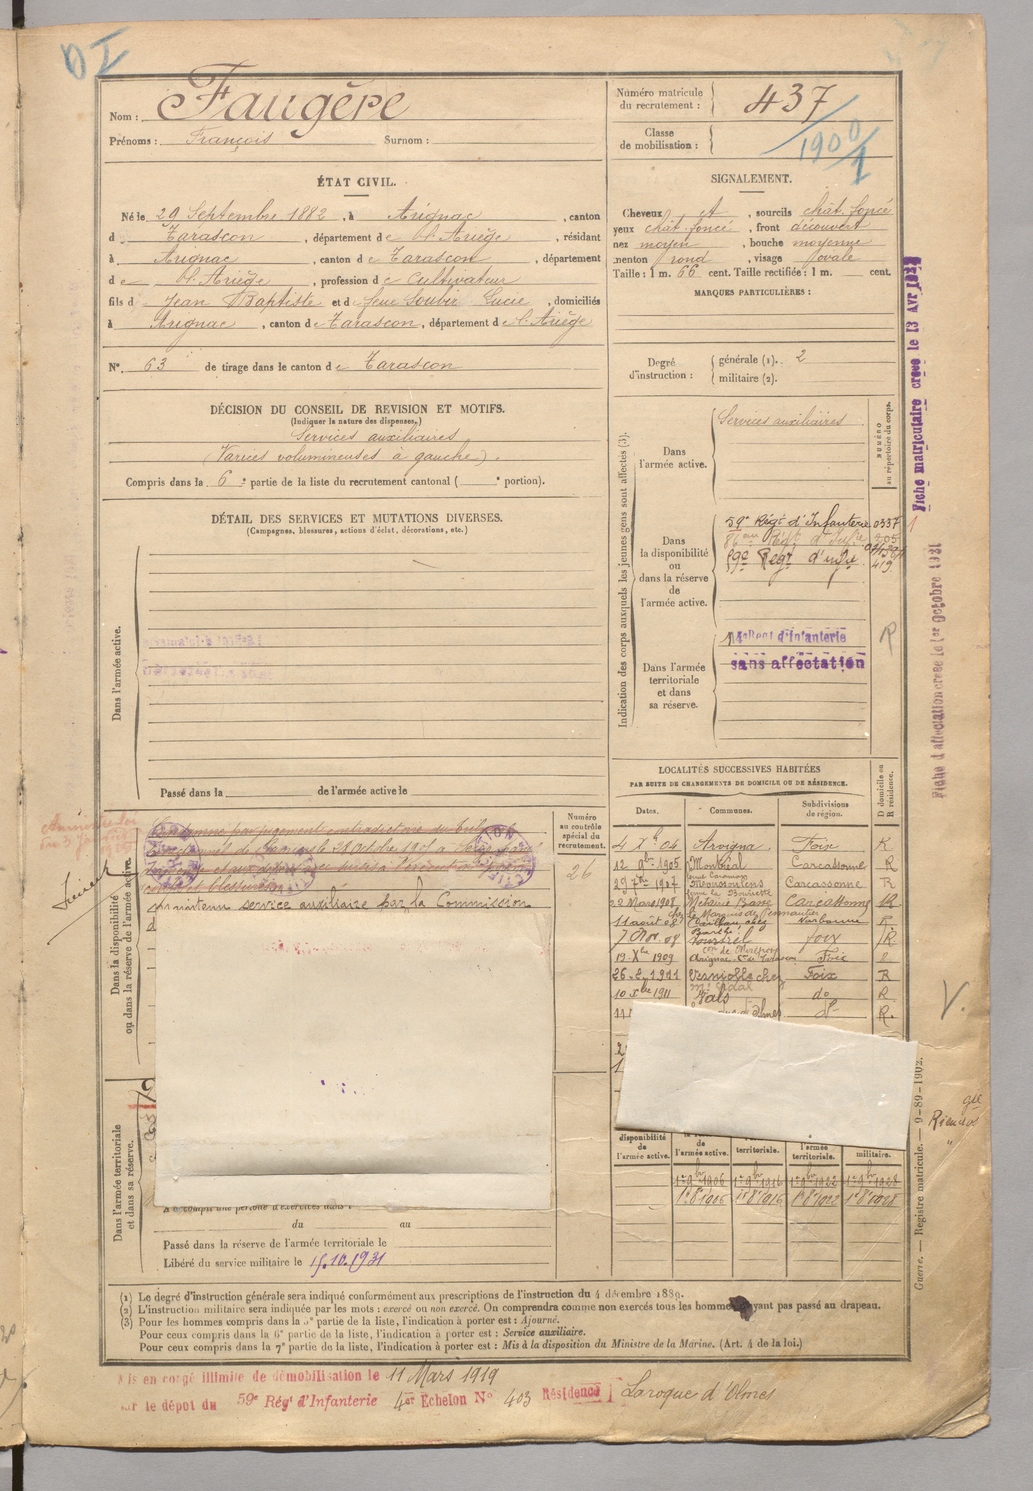 Nom : Faugère
Prénoms : François Surnom :
Numéro matricule du recrutement : 437
Classe de mobilisation : 1900/1
ÉTAT CIVIL.
Né le 29 Septembre 1882, à Arignac, canton
de Tarascon, département de l'Ariège, résidant
à Arignac, canton de Tarascon, département
de l'Ariège, profession de Cultivateur
fils de Jean Baptiste et de feue Soubir Lucie, domiciliés
à Arignac, canton de Tarascon, département de l'Ariège
N° 63 de tirage dans le canton de Tarascon
SIGNALEMENT.
Cheveux et, sourcils chât. foncé
yeux chât. foncé, front découvert
nez moyen, bouche moyenne
menton rond, visage ovale
Taille : 1 m. 66 cent. Taille rectifiée : 1 m. cent.
MARQUES PARTICULIÈRES :
Degré d'instruction : générale (1). 2
militaire (2).
DÉCISION DU CONSEIL DE REVISION ET MOTIFS.
(Indiquer la nature des dispenses.)
Services auxiliaires
(Varices volumineuses à gauche).
Compris dans la 6e partie de la liste du recrutement cantonal ( e portion).
DÉTAIL DES SERVICES ET MUTATIONS DIVERSES.
(Campagnes, blessures, actions d'éclat, décorations, etc.)
Dans l'armée active.
Passé dans la de l'armée active le
Indication des corps auxquels les jeunes gens sont affectés (3).
NUMÉRO au répertoire du corps.
Dans l'armée active. Services auxiliaires
Dans la disponibilité ou dans la réserve de l'armée active.
59e Régt d'Infanterie 0337
59e Régt d'Infie 419
Dans l'armée territoriale et dans sa réserve.
d'Infanterie
sans affectation
R
Fiche matriculaire créée le 13 Avr
Fiche d'affectation créée le 1er octobre 1921
LOCALITÉS SUCCESSIVES HABITÉES
PAR SUITE DE CHANGEMENTS DE DOMICILE OU DE RÉSIDENCE.
Dates. Communes. Subdivisions de région. D domicile ou R résidence.
4 Xbre 04 Arvigna Foix R
12 9bre 1905 Montréal Carcassonne R
29 7bre 1907 Moussoulens Carcassonne R
22 Mars 1908 Métairie Basse Carcassonne R
11 août 08 Narbonne R
7 Nov. 08 Foix R
19 Xbre 1909 Foix
26-2-1911 Verniolle chez Mr Vidal Foix R
10 Xbre 1911 Vals do R
11 d'Olmes do R.
Numéro au contrôle spécial du recrutement.
26
Dans la disponibilité ou dans la réserve de l'armée active.
Condamné par jugement contradictoire du
le 28 Octobre 1905
coups et blessures
maintenu service auxiliaire par la Commission
Dans l'armée territoriale et dans sa réserve.
disponibilité de l'armée active.
l'armée active. territoriale. l'armée territoriale. militaire.
1er 9bre 1906 1er 9bre 1916 1er 9bre 1922 1er 9bre 1928
1er 8bre 1906 1er 8bre 1916 1er 8bre 1922 1er 8bre 1928
A accompli une période d'exercices dans l
du au
Passé dans la réserve de l'armée territoriale le
Libéré du service militaire le 15.10.1931
(1) Le degré d'instruction générale sera indiqué conformément aux prescriptions de l'instruction du 4 décembre 1889.
(2) L'instruction militaire sera indiquée par les mots : exercé ou non exercé. On comprendra comme non exercés tous les hommes n'ayant pas passé au drapeau.
(3) Pour les hommes compris dans la 5e partie de la liste, l'indication à porter est : Ajourné.
Pour ceux compris dans la 6e partie de la liste, l'indication à porter est : Service auxiliaire.
Pour ceux compris dans la 7e partie de la liste, l'indication à porter est : Mis à la disposition du Ministre de la Marine. (Art. 4 de la loi.)
Guerre. — Registre matricule. — 9-89-1902.
Mis en congé illimité de démobilisation le 11 Mars 1919
par le dépôt du 59e Régt d'Infanterie 4er Echelon N° 403 Résidence Laroque d'Olmes